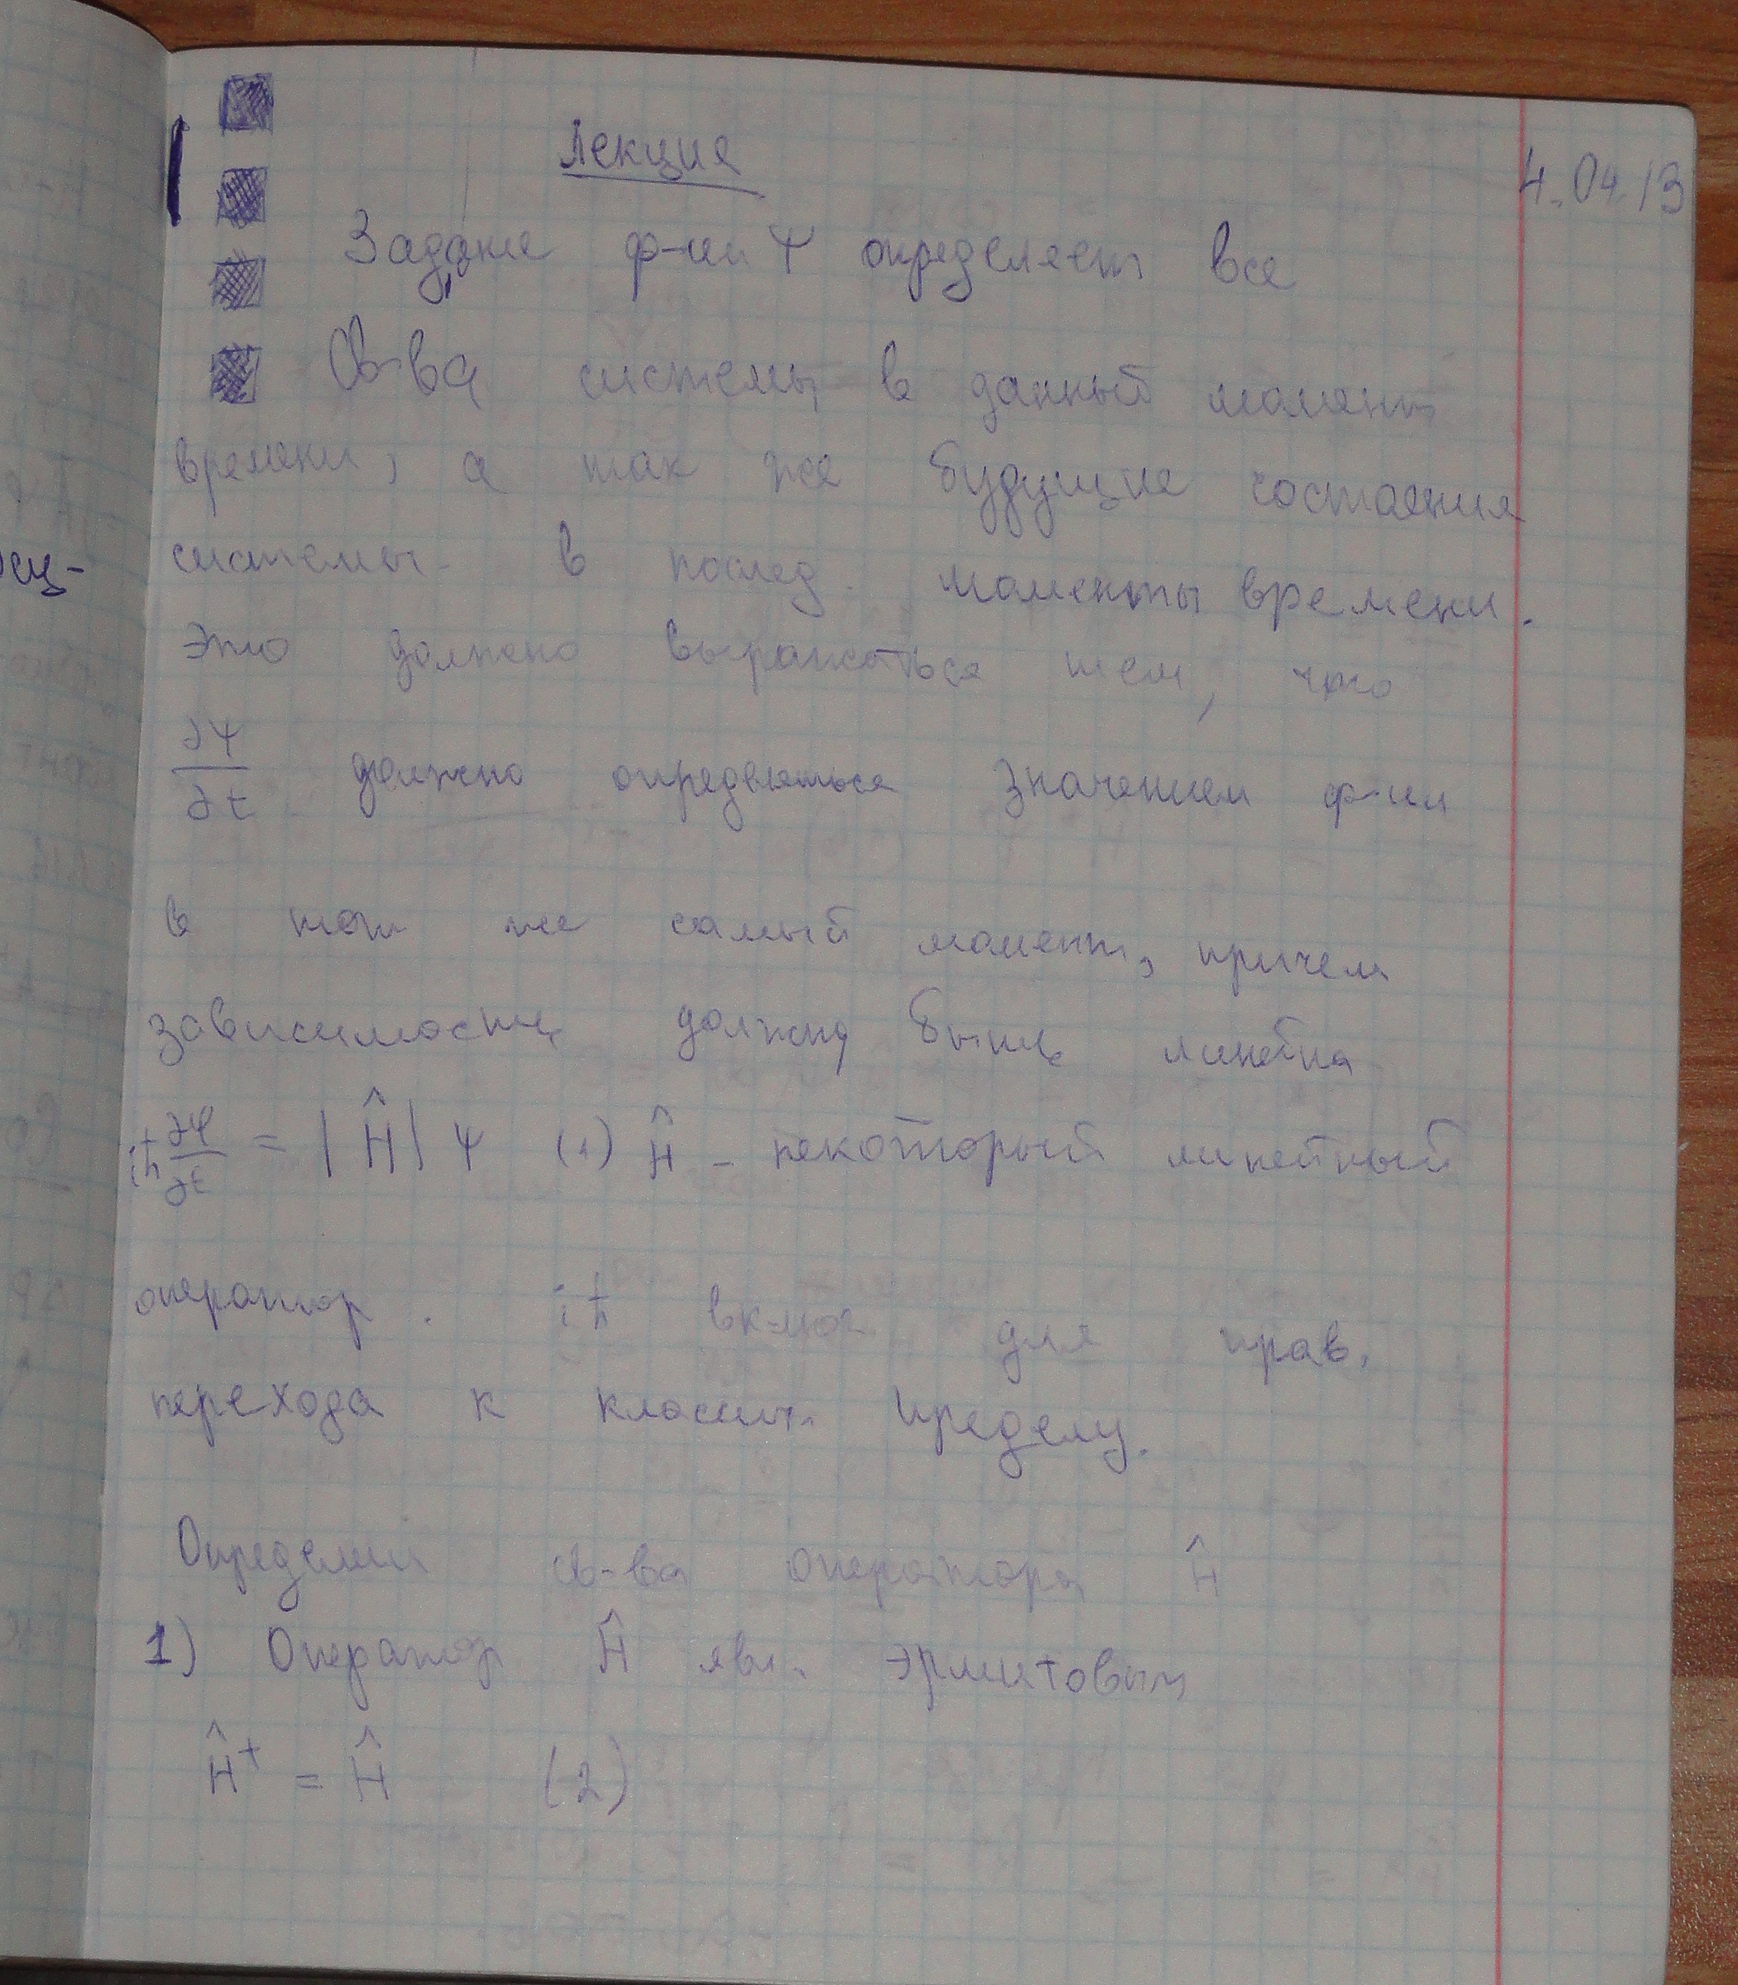 Лекция
4.04.13
Задание ф-ии Ψ определяет все
св-ва системы в данный момент
времени, а так же будущие состояния
системы в послед. моменты времени.
Это должно выражаться тем, что
∂Ψ/∂t должно определяться значением ф-ии
в тот же самый момент, причем
зависимость должна быть линейна
iħ ∂Ψ/∂t = |Ĥ| Ψ (1) Ĥ - некоторый линейный
оператор. iħ включ для прав.
перехода к классич. пределу.
Определим св-ва оператора Ĥ
1) Оператор Ĥ явл. эрмитовым
Ĥ⁺ = Ĥ (2)